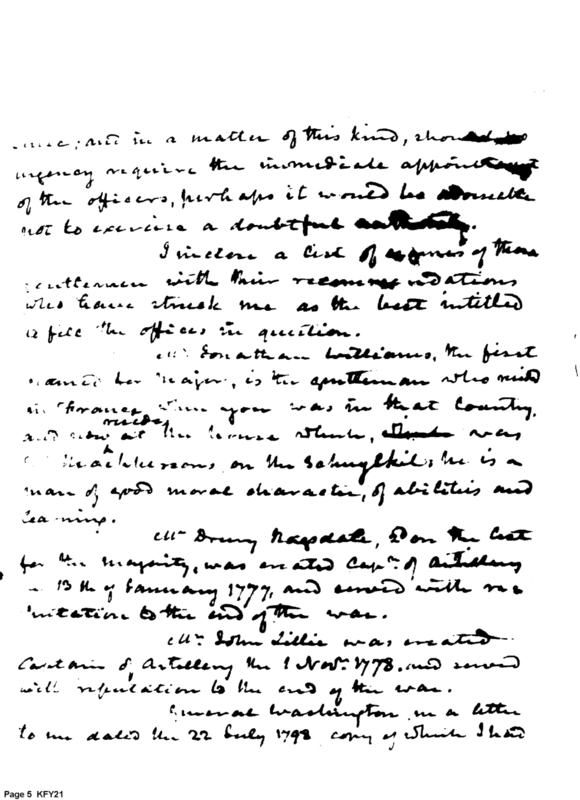 and in a matter of this kind, should
urgency require the immediate appointment
of the officers, perhaps it would be adviseable
not to exercise a doubtful authority.
I inclose a list of names of those
gentlemen with their recommendations
who have struck me as the best intitled
to fill the offices in question.
Mr. Jonathan Williams, the first
named for Major, is the gentleman who
in France when you was in that Country,
and now resides at the house which, was
on the Schuylkil; he is a
man of good moral character, of abilities and
learning.
Mr. Drury Ragsdale, 2d on the list
for the majority, was created Capn. of Artillery
13th of January 1777, and served with re
putation to the end of the war.
Mr. John Lillie was created
Captain of Artillery the 1 Novr. 1778, and served
with reputation to the end of the war.
General Washington in a letter
to me dated the 22 July 1798 copy of which I had
Page 5 KFY21